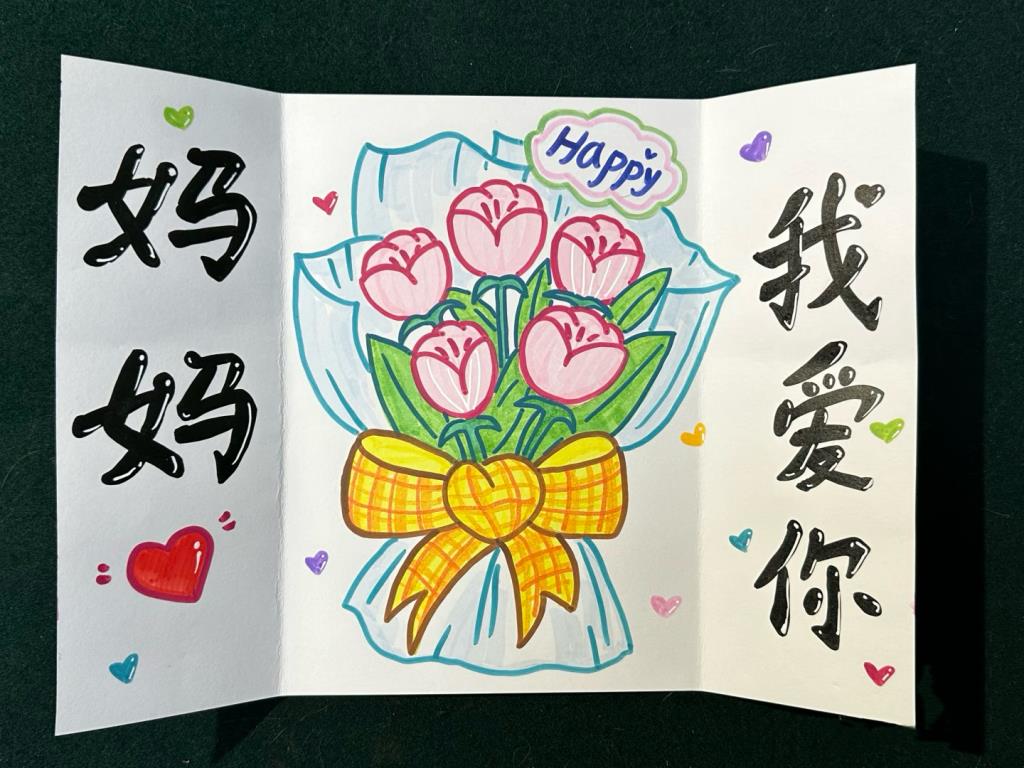 妈妈
Happy
我爱你